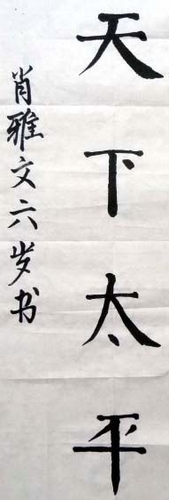 天下太平
肖雅文六岁书